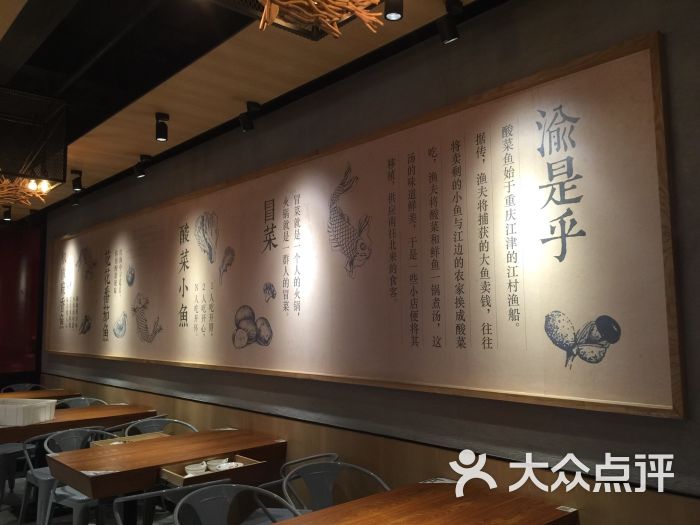 渝是乎
酸菜鱼始于重庆江津的江村渔船。
据传，渔夫将捕获的大鱼卖钱，往往
将卖剩的小鱼与江边的农家换成酸菜
吃，渔夫将酸菜和鲜鱼一锅煮汤，这
汤的味道鲜美，于是一些小店便将其
移植，供应南往北来的食客。
冒菜
冒菜就是一个人的火锅，
火锅就是一群人的冒菜。
酸菜小鱼
1人吃开胃，
2人吃开心，
N人吃开怀。
花花番茄鱼
大众点评